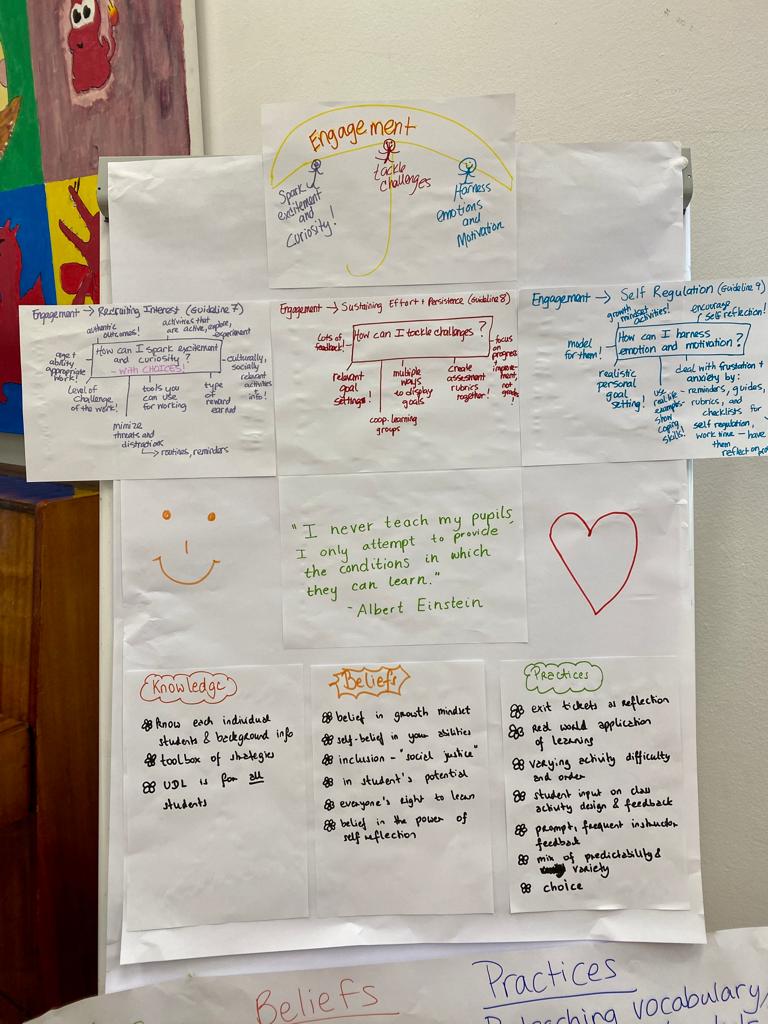 Engagement
Spark
excitement
and
curiosity!
tackle
challenges
Harness
emotions
and
Motivation
Engagement → Recruiting Interest (Guideline 7)
authentic
outcomes!
activities that
are active, explore,
experiment
How can I spark excitement
and curiosity?
- with CHOICES!
age +
ability
appropriate
work!
culturally,
socially
relevant
activities
+
info!
level of
challenge
of the work!
tools you
can use
for working
type
of
reward
earned
mimize
threats and
distractions
→ routines, reminders
Engagement → Sustaining Effort + Persistence (Guideline 8)
Lots of
feedback!
How can I tackle challenges?
focus
on
progress/
improve-
ment
not
grades!
relevant
goal
settings!
multiple
ways
to display
goals
create
assesment
rubrics
together!
coop. learning
groups
Engagement → Self Regulation (Guideline 9)
growth
mindset
activities!
encourage
self reflection!
model
for them!
How can I harness
emotion and motivation?
realistic
personal
goal
setting!
use
real life
examples
show
coping
skills!
deal with frustation +
anxiety by:
- reminders, guides,
rubrics, and
checklists for
self regulation,
work time - have
them
reflect on
"I never teach my pupils,
I only attempt to provide
the conditions in which
they can learn."
- Albert Einstein
Knowledge
Know each individual
students & background info
toolbox of strategies
UDL is for all
students
Beliefs
belief in growth mindset
self-belief in your abilities
inclusion - "social justice"
in student's potential
everyone's right to learn
belief in the power of
self reflection
Practices
exit tickets as reflection
Real world application
of learning
varying activity difficulty
and order
student input on class
activity design & feedback
prompt, frequent instructor
feedback
mix of predictability &
variety
choice
Beliefs
Practices
vocabulary